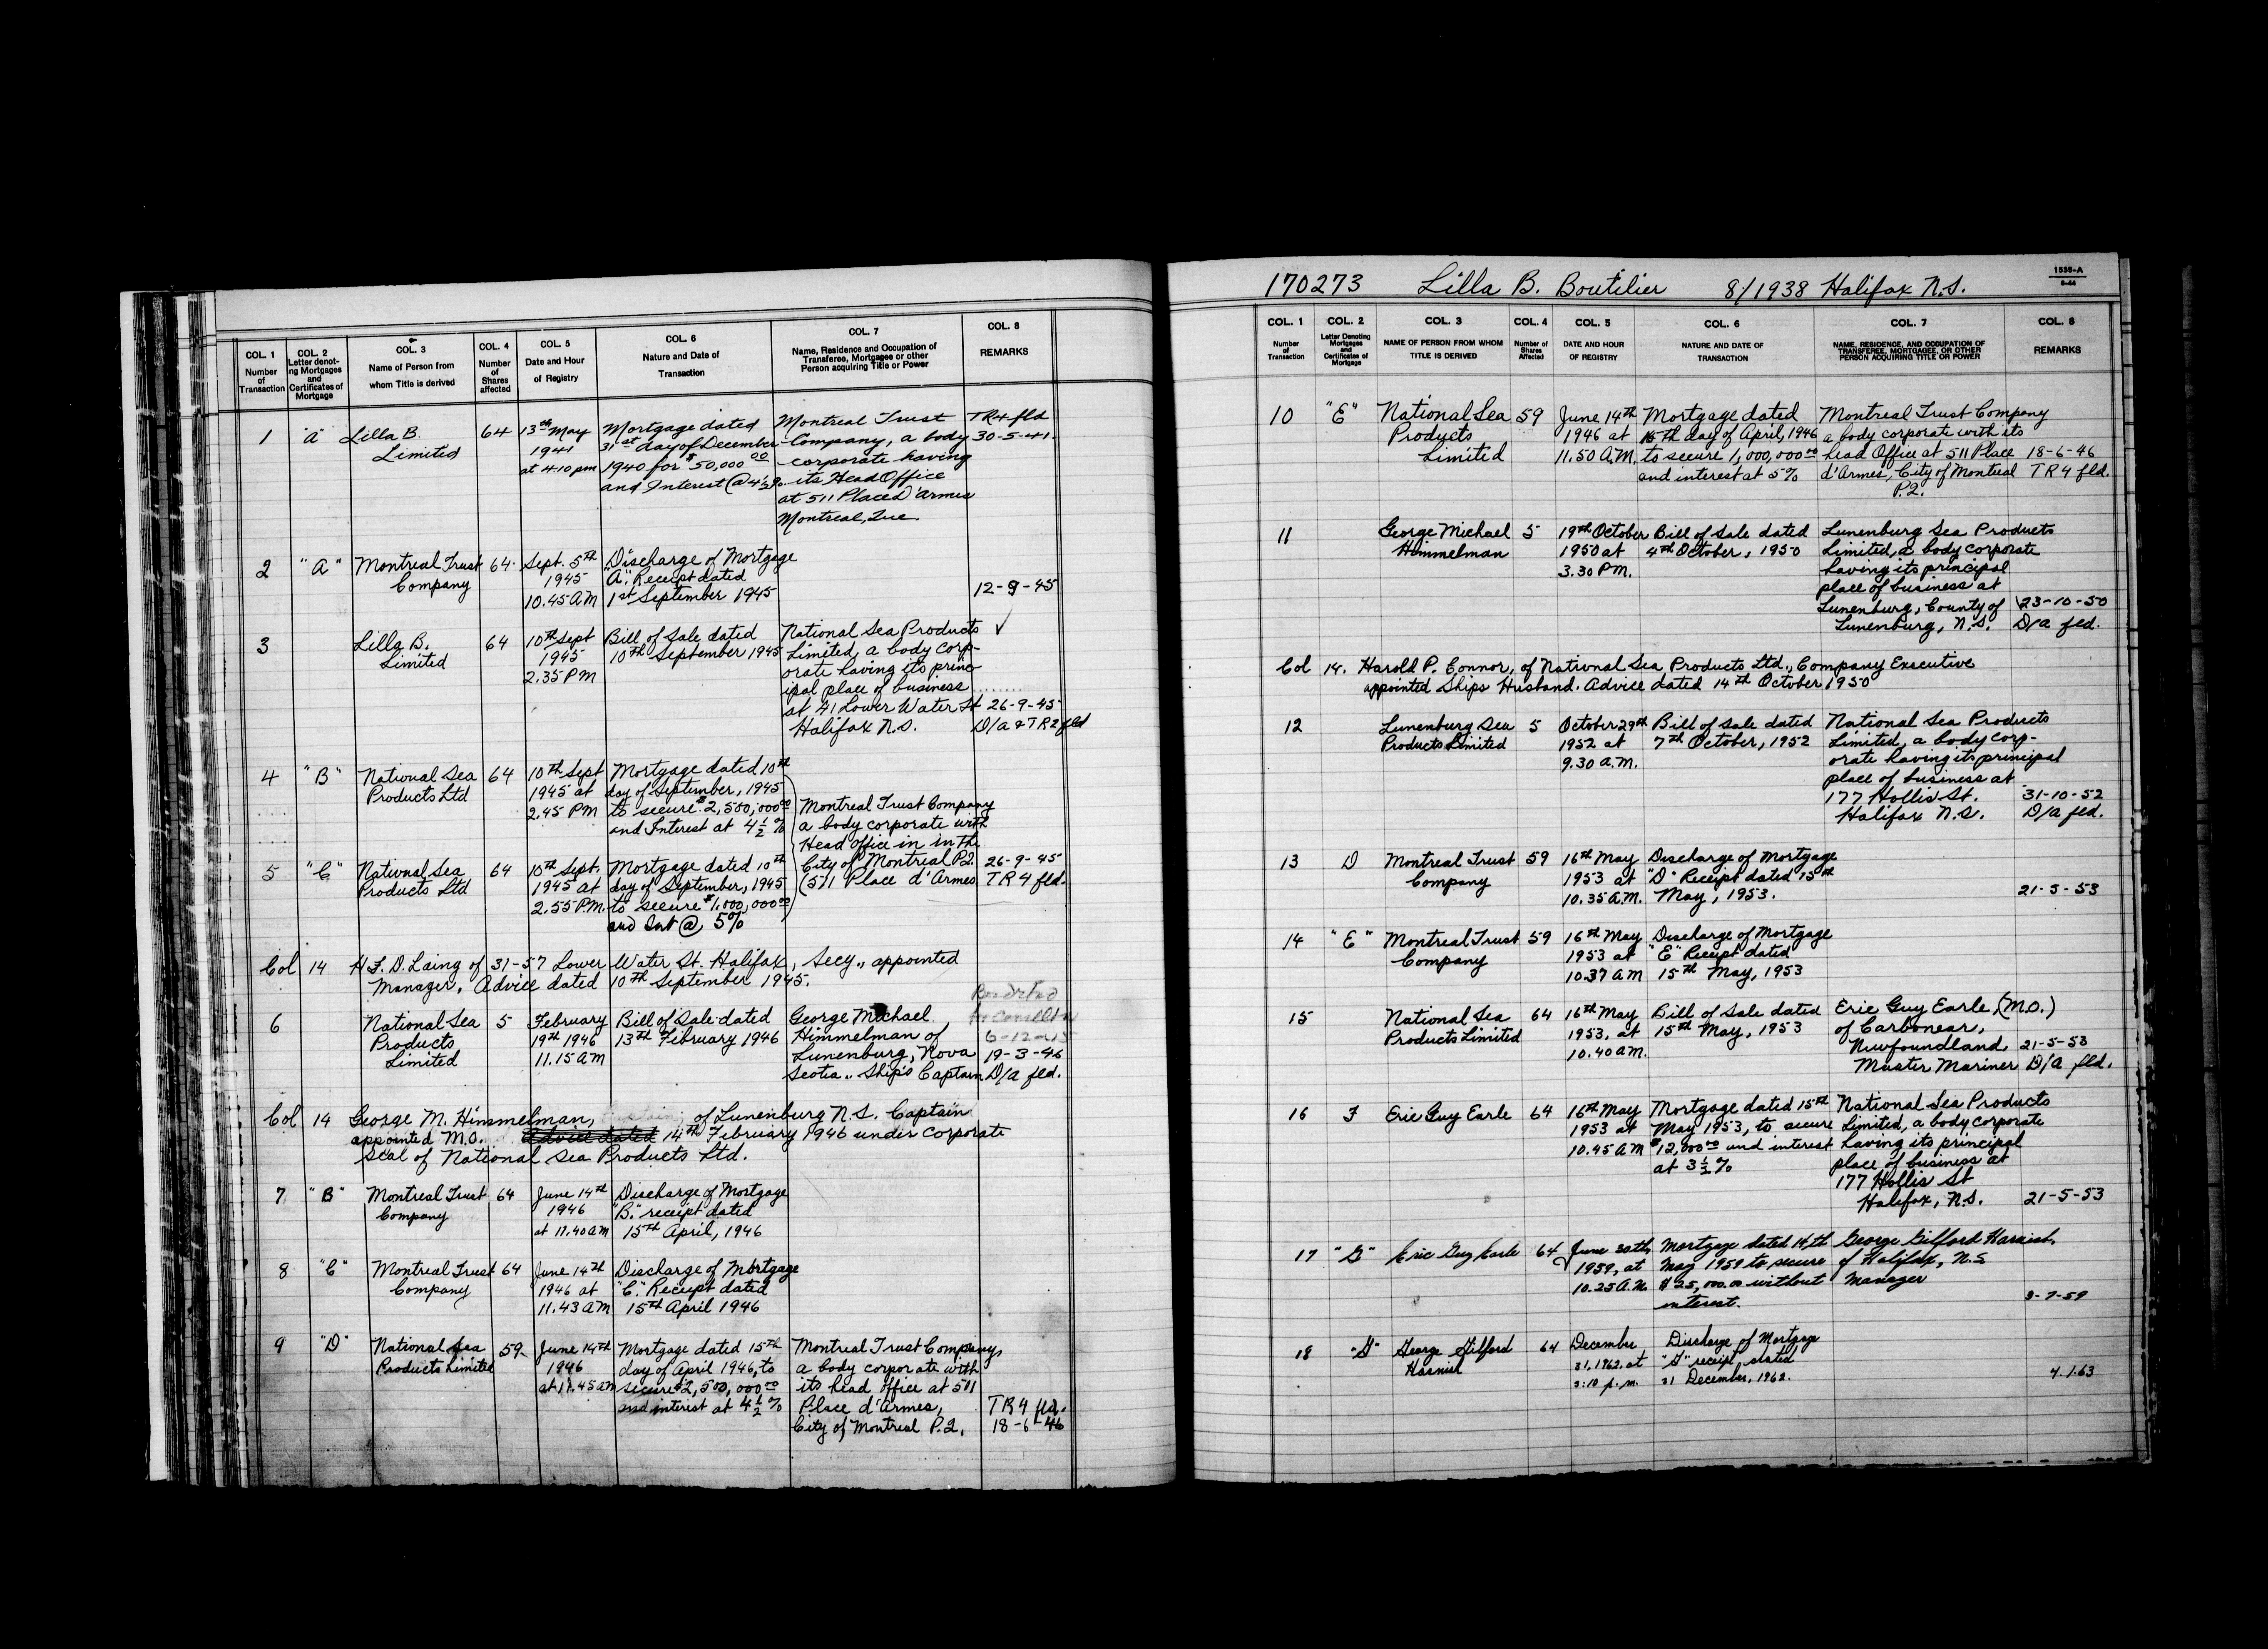 COL. 1 Number of Transaction
COL. 2 Letter denoting Mortgages and Certificates of Mortgage
COL. 3 Name of Person from whom Title is derived
COL. 4 Number of Shares affected
COL. 5 Date and Hour of Registry
COL. 6 Nature and Date of Transaction
COL. 7 Name, Residence and Occupation of Transferee, Mortgagee or other Person acquiring Title or Power
COL. 8 REMARKS
1 "A" Lilla B. 64 13th May Mortgage dated Montreal Trust TR4 fld
Limited 1941 31st day of December Company, a body 30-5-41.
at 4.10 pm 1940 for $50,000 00 corporate having
and Interest @ 4½% its Head Office
at 511 Place D'armes
Montreal, Que.
2 "A" Montreal Trust 64 Sept. 5th Discharge of Mortgage
Company 1945 "A". Receipt dated
10.45 AM 1st September 1945 12-9-45
3 Lilla B. 64 10th Sept Bill of Sale dated National Sea Products ✓
Limited 1945 10th September 1945 Limited, a body corp-
2.35 PM orate having its princ-
ipal place of business
at 41 Lower Water St 26-9-45
Halifax N.S. D/a & TR2 fld
4 "B" National Sea 64 10th Sept Mortgage dated 10th
Products Ltd 1945 at day of September, 1945
2.45 PM to secure $2,500,000 00 Montreal Trust Company
and Interest at 4½% a body corporate with
Head office in in th
5 "C" National Sea 64 10th Sept. Mortgage dated 10th City of Montreal P2. 26-9-45
Products Ltd 1945 at day of September, 1945 (511 Place d'Armes TR4 fld.
2.55 P.M. to secure $1,000,000 00
and Int @ 5%
Col 14 H.F.D. Laing of 31-57 Lower Water St. Halifax, Secy., appointed
Manager, Advice dated 10th September 1945.
6 National Sea 5 February Bill of Sale dated George Michael
Products 19th 1946 13th February 1946 Himmelman of
Limited 11.15 AM Lunenburg, Nova 19-3-46
Scotia,, Ship's Captain D/a fld.
Col 14 George M. Himmelman, of Lunenburg N.S. Captain
appointed M.O. Advice dated 14th February 1946 under corporate
seal of National Sea Products Ltd.
7 "B" Montreal Trust 64 June 14th Discharge of Mortgage
Company 1946 "B." receipt dated
at 11.40 am 15th April, 1946
8 "C" Montreal Trust 64 June 14th Discharge of Mortgage
Company 1946 at "C." Receipt dated
11.43 AM 15th April 1946
9 "D" National Sea 59 June 14th Mortgage dated 15th Montreal Trust Company,
Products Limited 1946 day of April 1946, to a body corporate with
at 11.45 am secure $2,500,000 00 its head office at 511
and interest at 4½% Place d'Armes, TR4 fld.
City of Montreal P.2. 18-6-46
170273 Lilla B. Boutilier 8/1938 Halifax N.S. 1535-A
6-44
COL. 1 Number of Transaction
COL. 2 Letter Denoting Mortgages and Certificates of Mortgage
COL. 3 NAME OF PERSON FROM WHOM TITLE IS DERIVED
COL. 4 Number of Shares Affected
COL. 5 DATE AND HOUR OF REGISTRY
COL. 6 NATURE AND DATE OF TRANSACTION
COL. 7 NAME, RESIDENCE, AND OCCUPATION OF TRANSFEREE, MORTGAGEE, OR OTHER PERSON ACQUIRING TITLE OR POWER
COL. 8 REMARKS
10 "E" National Sea 59 June 14th Mortgage dated Montreal Trust Company
Products 1946 at 15th day of April, 1946 a body corporate with its
Limited 11.50 A.M. to secure 1,000,000 00 head Office at 511 Place 18-6-46
and interest at 5% d'Armes, City of Montreal TR4 fld.
P.2.
11 George Michael 5 19th October Bill of Sale dated Lunenburg Sea Products
Himmelman 1950 at 4th October, 1950 Limited, a body corporate
3.30 PM. having its principal
place of business at
Lunenburg, County of 23-10-50
Lunenburg, N.S. D/a fld.
Col 14. Harold P. Connor, of National Sea Products Ltd., Company Executive
appointed Ships Husband. Advice dated 14th October 1950
12 Lunenburg Sea 5 October 29th Bill of Sale dated National Sea Products
Products Limited 1952 at 7th October, 1952 Limited, a body corp-
9.30 A.M. orate having its principal
place of business at
177 Hollis St. 31-10-52
Halifax N.S. D/a fld.
13 D Montreal Trust 59 16th May Discharge of Mortgage
Company 1953 at "D" Receipt dated 15th
10.35 A.M. May, 1953. 21-5-53
14 "E" Montreal Trust 59 16th May Discharge of Mortgage
Company 1953 at "E" Receipt dated
10.37 AM 15th May, 1953
15 National Sea 64 16th May Bill of Sale dated Eric Guy Earle, (M.O.)
Products Limited 1953, at 15th May, 1953 of Carbonear,
10.40 AM. Newfoundland, 21-5-53
Master Mariner D/a fld.
16 F Eric Guy Earle 64 16th May Mortgage dated 15th National Sea Products
1953 at May 1953, to secure Limited, a body corporate
10.45 AM $12,000 00 and interest having its principal
at 3½% place of business at
177 Hollis St
Halifax, N.S. 21-5-53
17 "G" Eric Guy Earle 64 June 30th Mortgage dated 14th George Gilford Harnish,
1959, at May 1959 to secure of Halifax, N.S
10.25 A.M. $25,000.00 without Manager
interest. 3-7-59
18 "G" George Gilford 64 December Discharge of Mortgage
Harnish 31, 1962, at "G" receipt dated
3:10 p.m. 31 December, 1962. 4.1.63